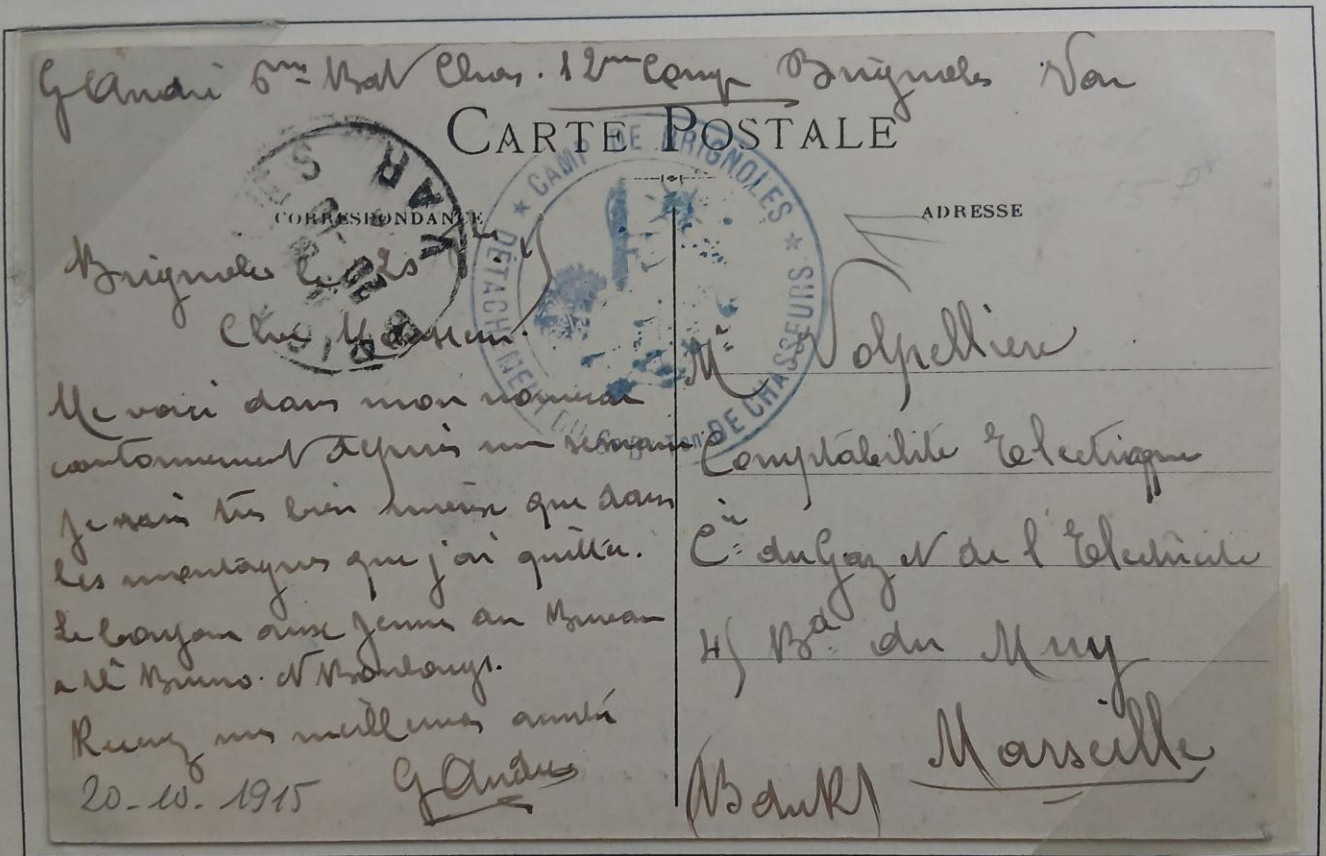 G André 6me Bat Chas. 12me Comp Brignoles Var
CARTE POSTALE
CORRESPONDANCE
ADRESSE
★ CAMP DE BRIGNOLES ★
DÉTACHEMENT DU Bataillon DE CHASSEURS
VAR
Brignoles le 20
Cher Monsieur.
Me voici dans mon nouveau
cantonnement depuis une semaine
Je suis très bien mieux que dans
les montagnes que j'ai quittées.
Le bonjour aux jeunes au Bureau
a Mr Bruno. et
Recevez mes meilleures amitiés
G André
20-10-1915
Mr Volpellière
Comptabilité Electrique
Cie du Gaz et de l'Electricité
45 Bd du Muy
Marseille
(B du R)